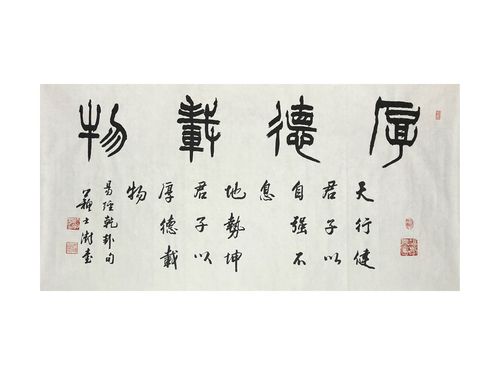 厚德載物
天行健
君子以
自強不
息
地勢坤
君子以
厚德載
物
易經乾卦句